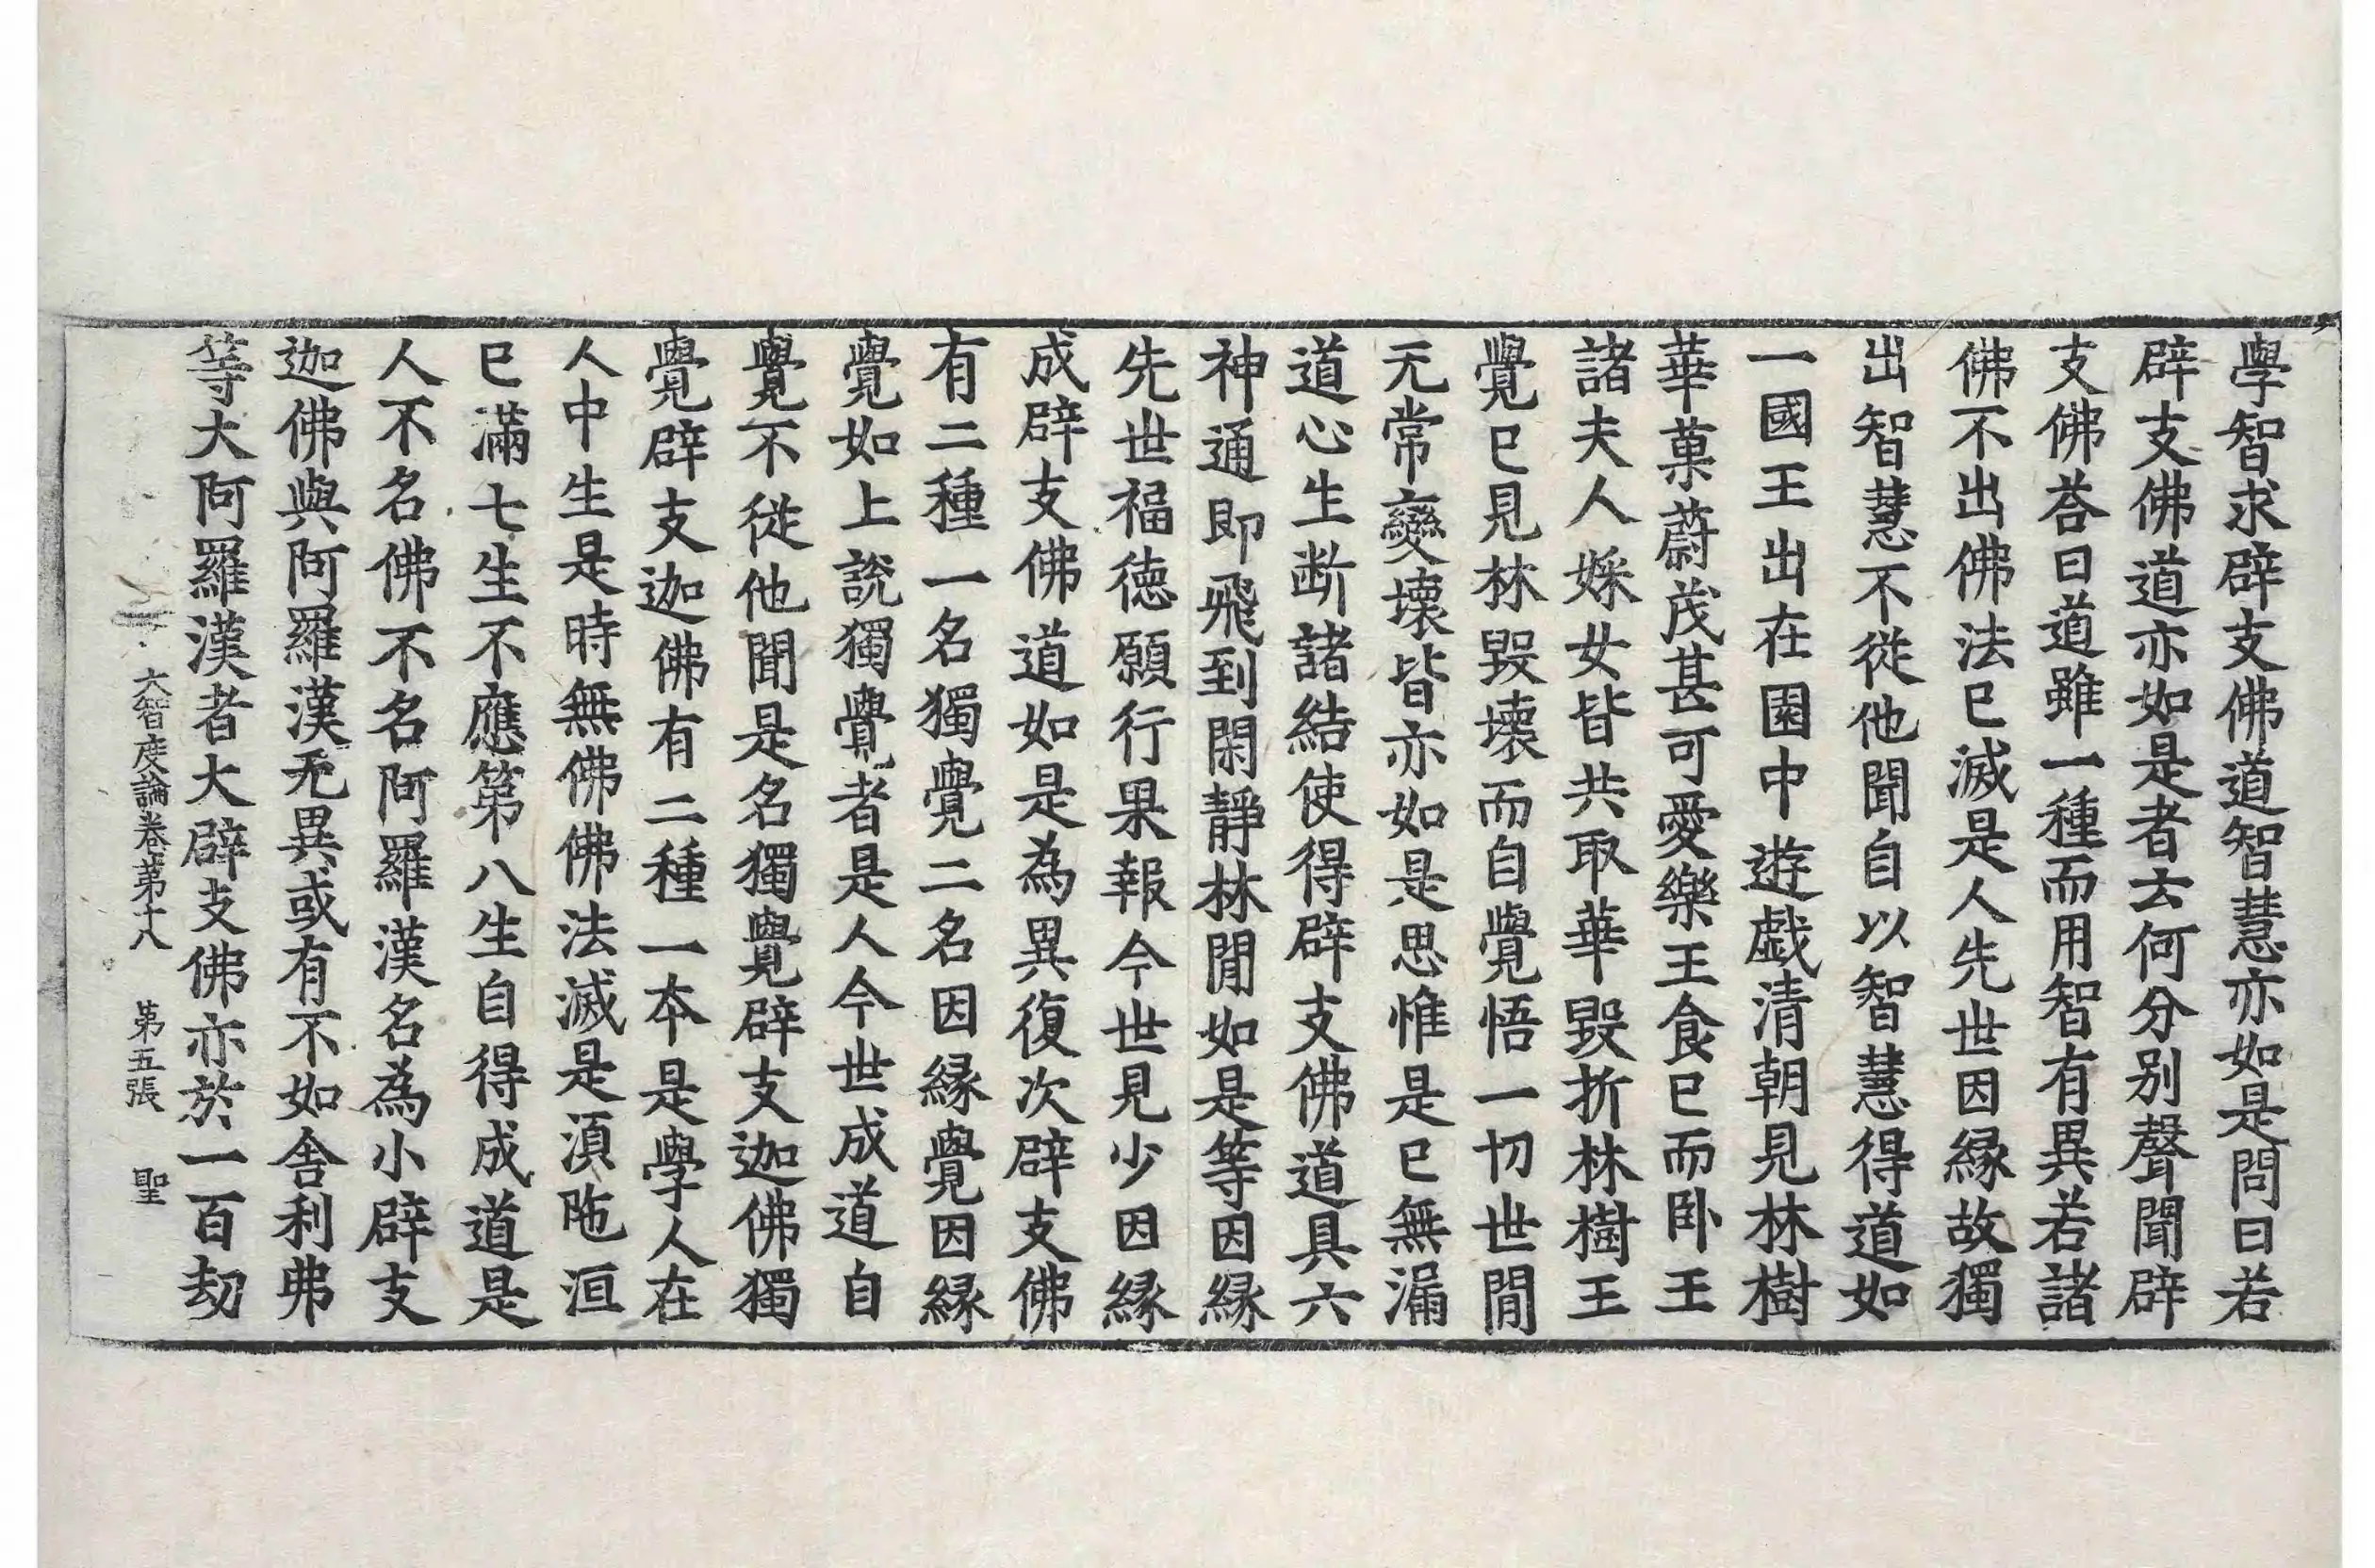 學智求辟支佛道智慧亦如是問曰若
辟支佛道亦如是者云何分別聲聞辟
支佛荅曰道雖一種而用智有異若諸
佛不出佛法已滅是人先世因緣故獨
出智慧不從他聞自以智慧得道如
一國王出在園中遊戲清朝見林樹
華菓蔚茂甚可愛樂王食已而卧王
諸夫人婇女皆共取華毀折林樹王
覺已見林毀壞而自覺悟一切世閒
无常變壞皆亦如是思惟是已無漏
道心生断諸結使得辟支佛道具六
神通即飛到閑靜林閒如是等因緣
先世福德願行果報今世見少因緣
成辟支佛道如是為異復次辟支佛
有二種一名獨覺二名因緣覺因緣
覺如上說獨覺者是人今世成道自
覺不從他聞是名獨覺辟支迦佛獨
覺辟支迦佛有二種一本是學人在
人中生是時無佛佛法滅是湏陁洹
已滿七生不應第八生自得成道是
人不名佛不名阿羅漢名為小辟支
迦佛與阿羅漢无異或有不如舍利弗
等大阿羅漢者大辟支佛亦於一百劫
大智度論卷第十八 第五張 聖